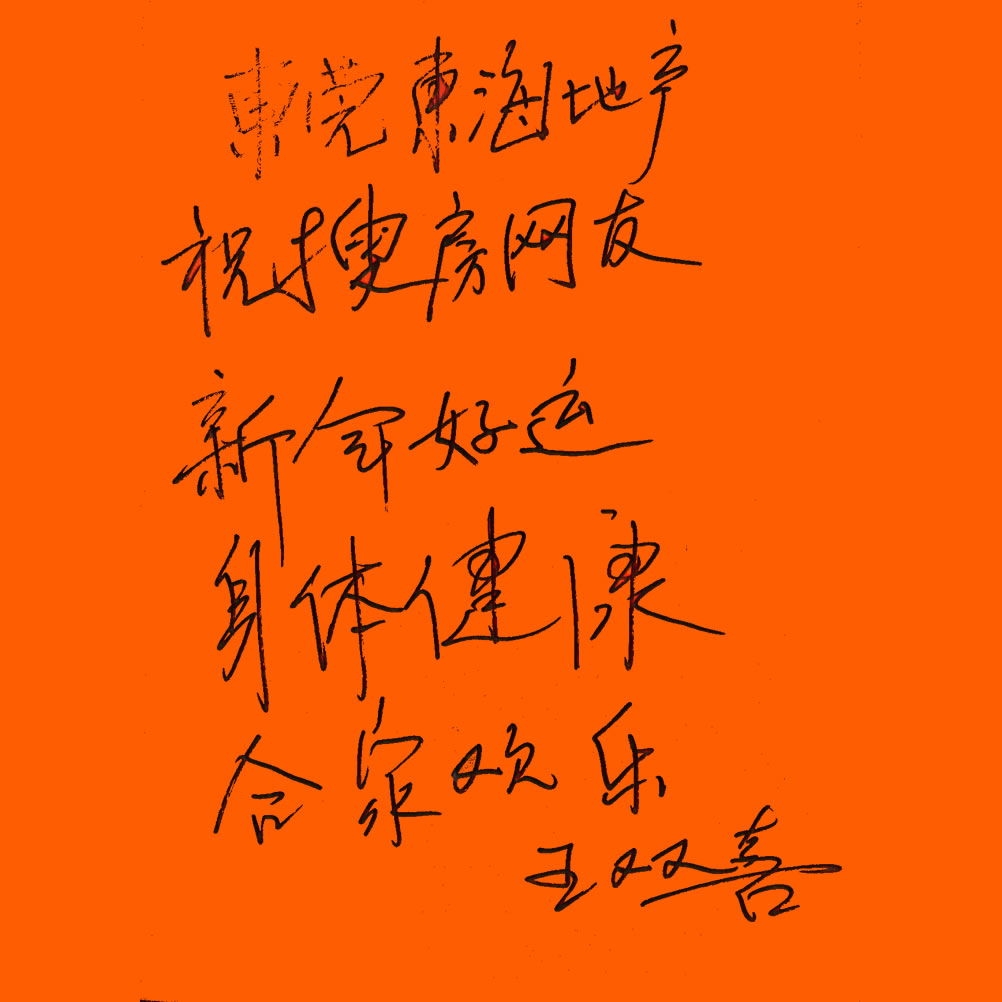 東莞東海地产
祝搜房网友
新年好运
身体健康
合家欢乐
王双喜